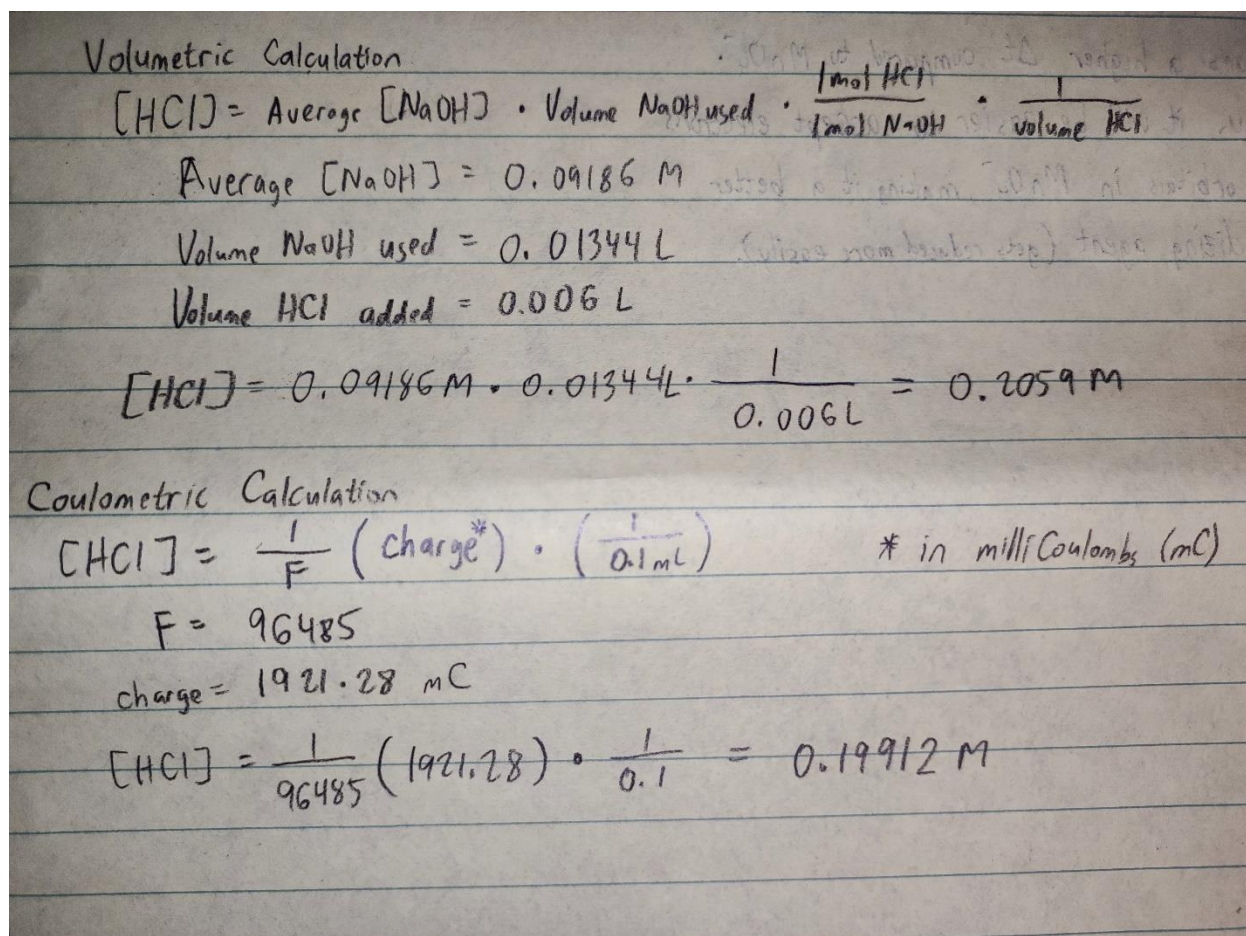 Volumetric Calculation
[HCl] = Average [NaOH] · Volume NaOH used · 1 mol HCl / 1 mol NaOH · 1 / volume HCl
Average [NaOH] = 0.09186 M
Volume NaOH used = 0.01344 L
Volume HCl added = 0.006 L
[HCl] = 0.09186 M · 0.01344 L · 1 / 0.006 L = 0.2059 M
Coulometric Calculation
[HCl] = 1 / F (charge*) · (1 / 0.1 mL) * in milliCoulombs (mC)
F = 96485
charge = 1921.28 mC
[HCl] = 1 / 96485 (1921.28) · 1 / 0.1 = 0.19912 M